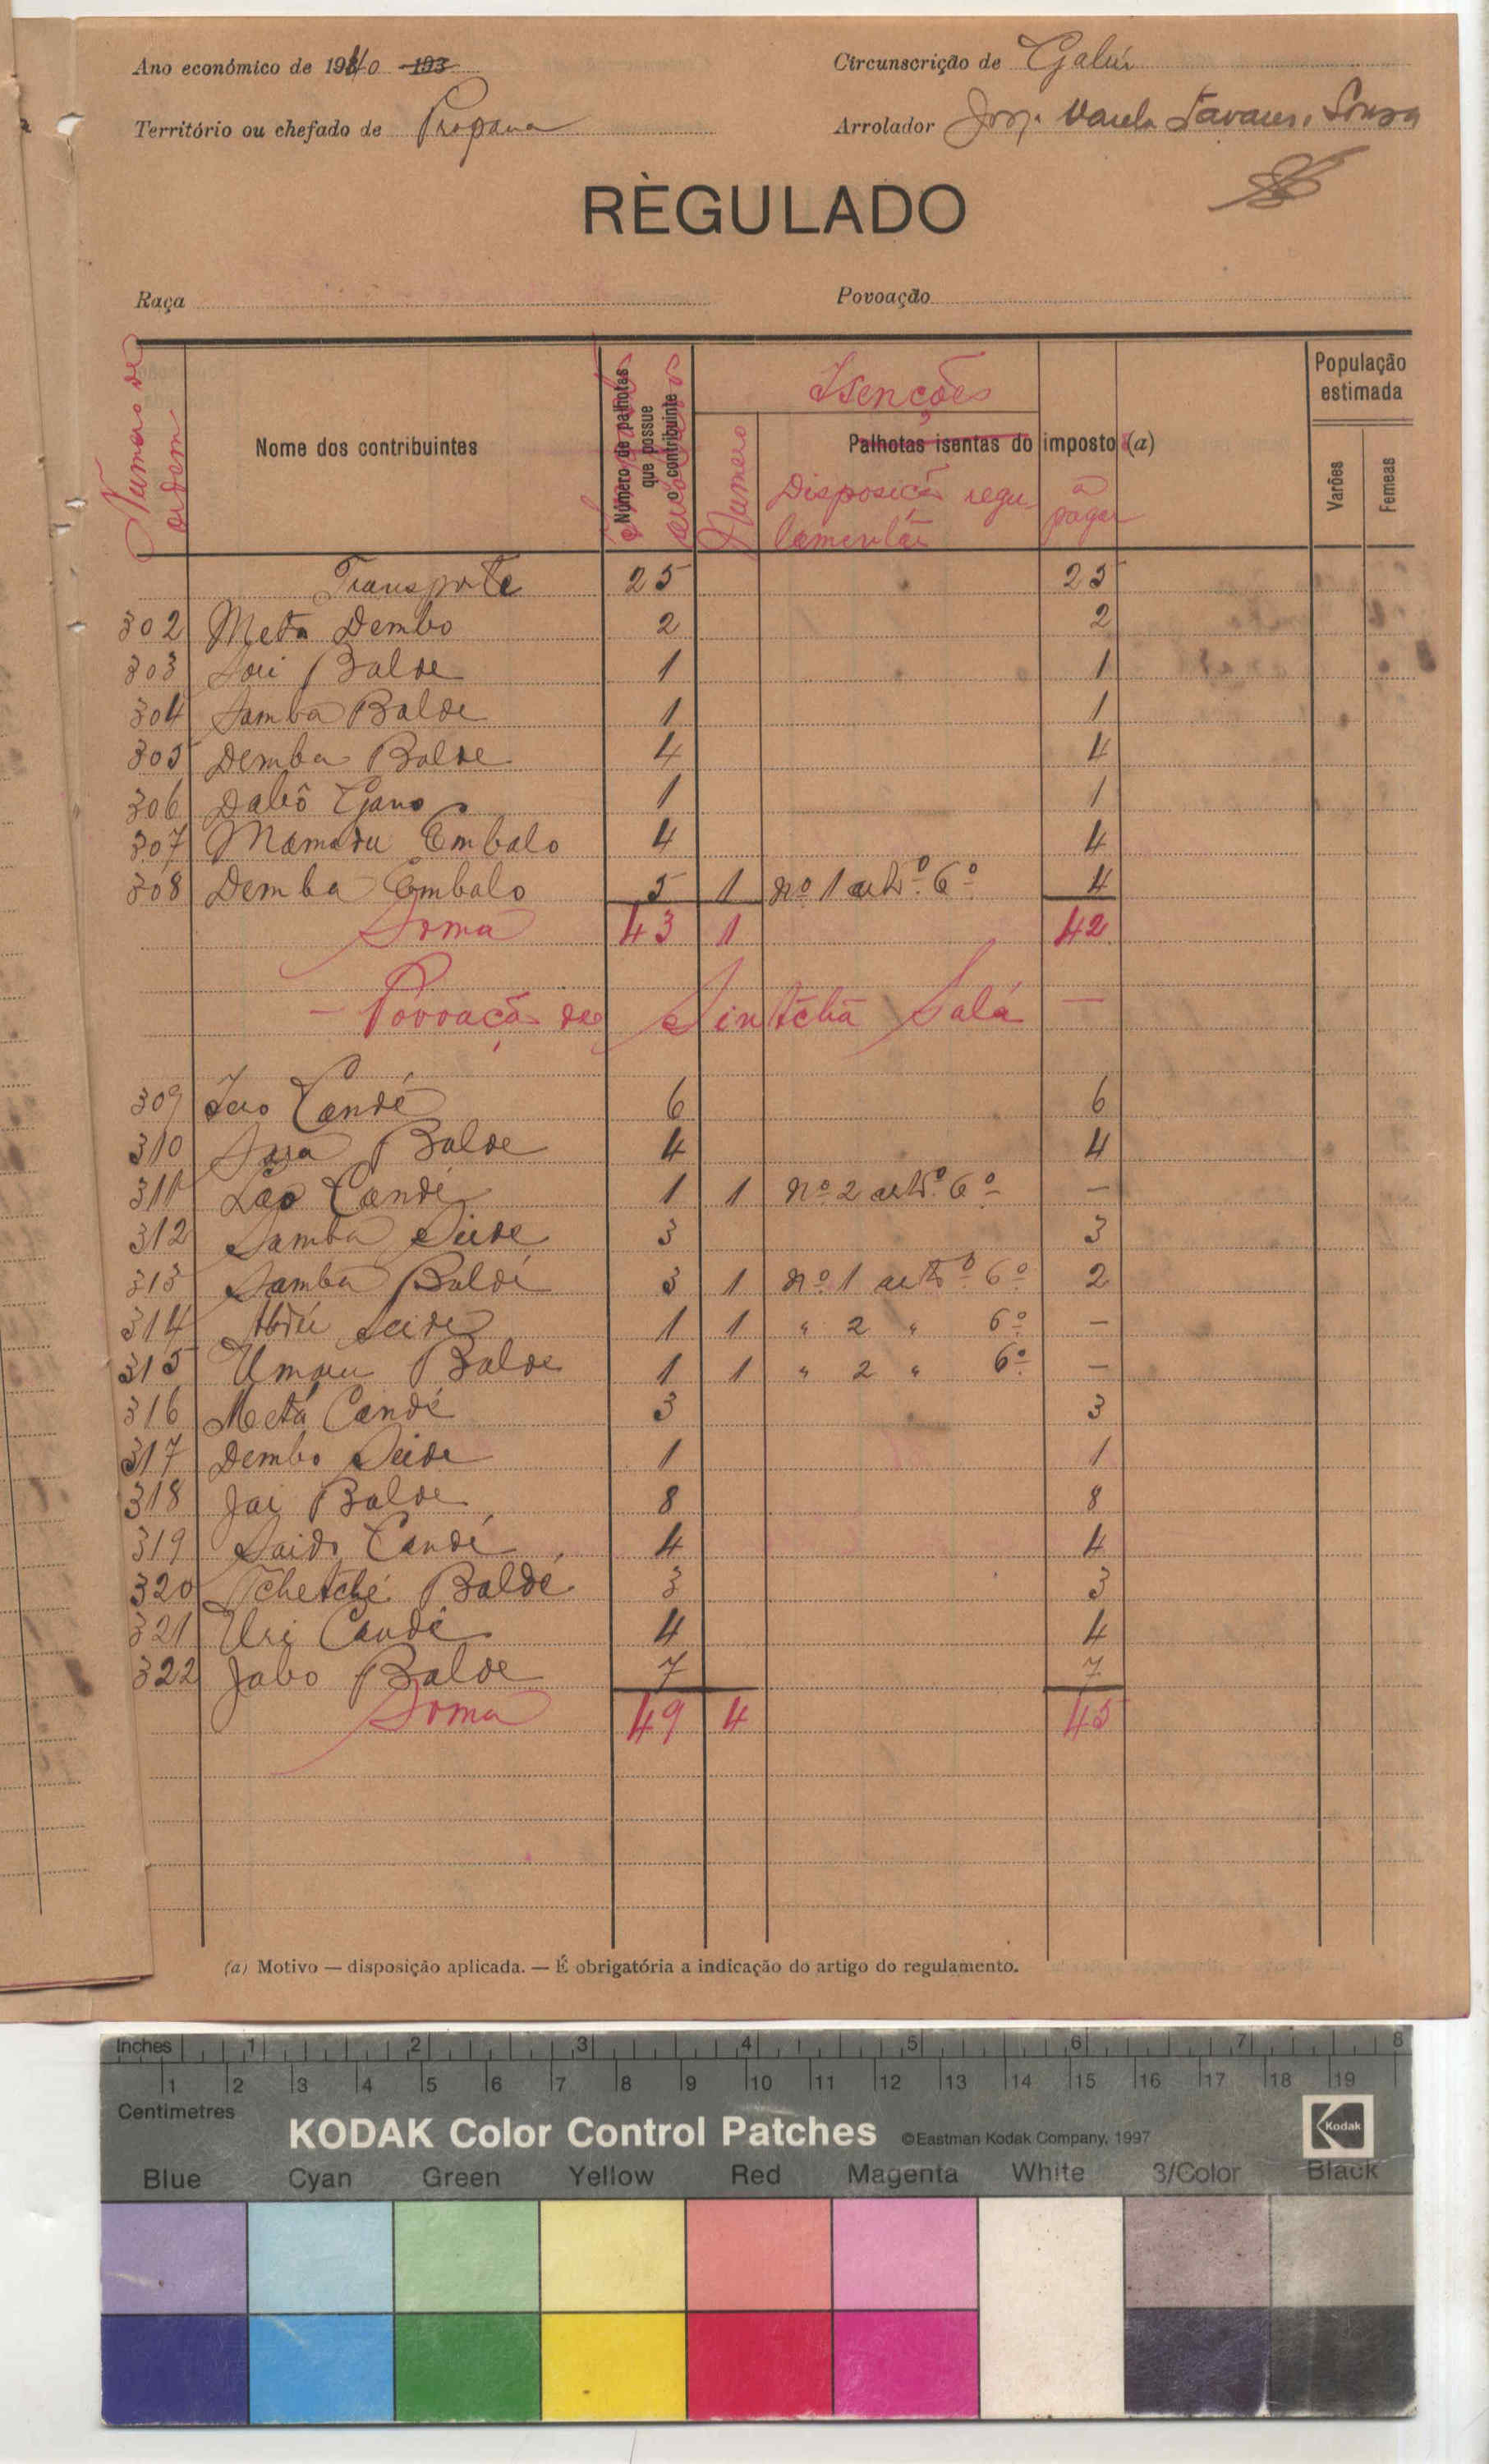 Ano económico de 1940 193
Circunscrição de Gabú
Território ou chefado de Propana
Arrolador Jorge Varela Tavares e Sousa
RÈGULADO
Raça
Povoação
Numero de ordem
Nome dos contribuintes
Número de palhotas que possue o contribuinte
Isenções
Palhotas isentas do imposto (a)
Numero
Disposição regulamentár
a pagar
População estimada
Varões
Femeas
Transporte 25 25
302 Meta Dembo 2 2
303 Balde 1 1
304 Samba Balde 1 1
305 Demba Balde 4 4
306 Dabô Gano 1 1
307 Mamadu Embalo 4 4
308 Demba Embalo 5 1 nº 1 artº 6º 4
Soma 43 1 42
— Povoação de Sintchã Salá —
309 Candé 6 6
310 Balde 4 4
311 Candé 1 1 nº 2 artº 6º —
312 Samba Seide 3 3
313 Samba Baldé 3 1 nº 1 artº 6º 2
314 Seide 1 1 " 2 " 6º —
315 Umaru Balde 1 1 " 2 " 6º —
316 Metá Candé 3 3
317 Dembo Seide 1 1
318 Jai Balde 8 8
319 Saido Candé 4 4
320 Tchetché Baldé 3 3
321 Uri Candé 4 4
322 Jabo Balde 7 7
Soma 49 4 45
(a) Motivo — disposição aplicada. — É obrigatória a indicação do artigo do regulamento.
Inches 1 2 3 4 5 6 7 8
1 2 3 4 5 6 7 8 9 10 11 12 13 14 15 16 17 18 19
Centimetres
KODAK Color Control Patches ©Eastman Kodak Company, 1997 Kodak
Blue Cyan Green Yellow Red Magenta White 3/Color Black